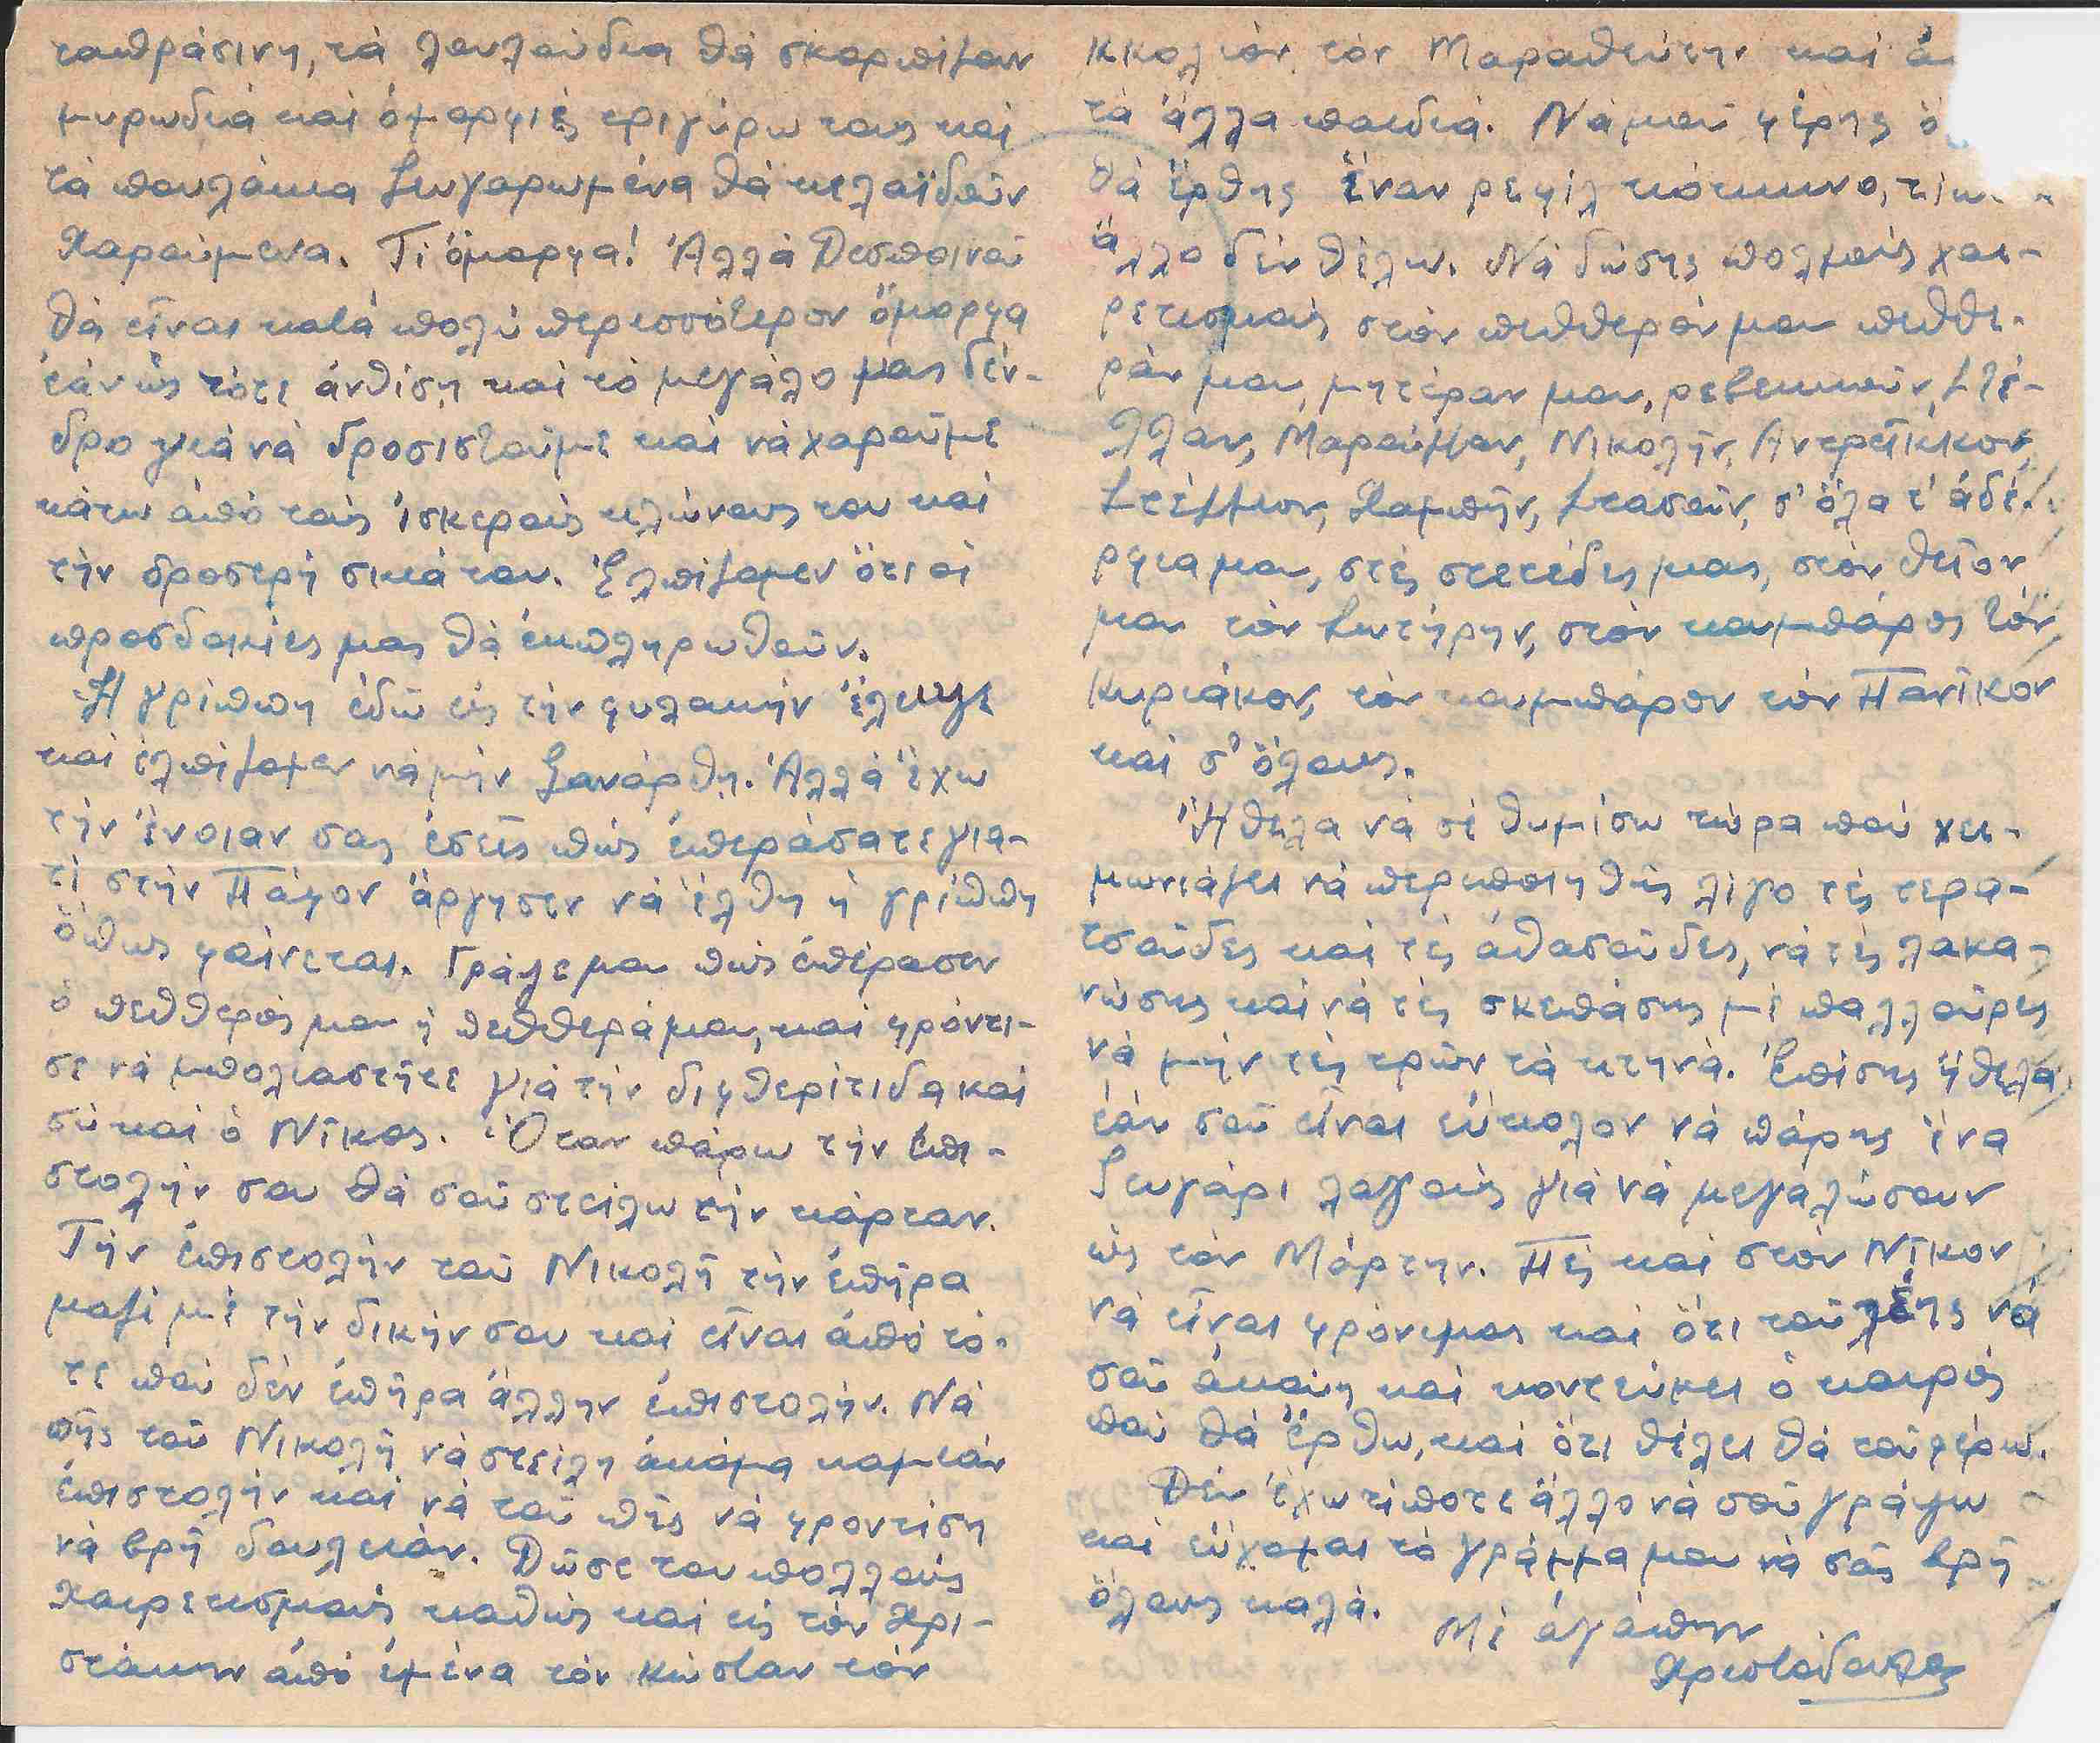 ταπράσινη, τά λουλούδια θά σκορπίζουν
μυρωδιά καί όμορφιές τριγύρω τους καί
τά πουλάκια ζευγαρωμένα θά κελαϊδοῦν
χαρούμενα. Τί όμορφα! Ἀλλά Δεσποινού
θά εἶναι κατά πολύ περισσότερον ὄμορφα
ἐάν ὥς τότε ἀνθίση καί τό μεγάλο μας δέν-
δρο γιά νά δροσιστοῦμε καί νά χαροῦμε
κάτω ἀπό τούς ἰσκερούς κλώνους του καί
τήν δροσερή σκιά του. Ἐλπίζομεν ὅτι οἱ
προσδοκίες μας θά ἐκπληρωθοῦν.
Ἡ γρίππη ἐδῶ εἰς τήν φυλακήν ἔλειψε
καί ἐλπίζομεν νά μήν ξανάρθη. Ἀλλά ἔχω
τήν ἔνοιαν σας ἐσεῖς πῶς ἐπεράσατε για-
τί στήν Πάφον ἄργησεν νά ἔλθη ἡ γρίππη
ὅπως φαίνεται. Γράψε μου πῶς ἐπέρασεν
ὁ πεθθερός μου ἡ πεθθερά μου, καί φρόντι-
σε νά μπολιαστῆτε γιά τήν διφθερίτιδα καί
σύ καί ὁ Νῖκος. Ὅταν πάρω τήν ἐπι-
στολήν σου θά σοῦ στείλω τήν κάρταν.
Τήν ἐπιστολήν τοῦ Νικολῆ τήν ἐπῆρα
μαζί μέ τήν δικήν σου καί εἶναι ἀπό τό-
τε πού δέν ἐπῆρα ἄλλην ἐπιστολήν. Νά
πῆς τοῦ Νικολῆ νά στείλη ἀκόμα καμιάν
ἐπιστολήν καί νά τοῦ πῆς νά φροντίση
νά βρῆ δουλειάν. Δῶσε του πολλούς
χαιρετισμούς καθώς καί εἰς τόν Χρι-
στάκην ἀπό ἐμένα τόν Κώσταν τόν
Κκολιόν τόν Μαραθεύτην καί
τά ἄλλα παιδιά. Νά μοῦ φέρης
θά ἔρθης ἕναν ρεφίλ κόκκινο,
ἄλλο δέν θέλω. Νά δώσης πολλούς χαι-
ρετισμούς στόν πεθθερόν μου πεθθε-
ράν μου, μητέραν μου, ρεβεκκοῦν, Στέ-
λλαν, Μαρούλλαν, Νικολῆν, Ἀντρεῖκκον,
Στέλλιον, Χαμπῆν, Στασοῦν, σ' ὅλα τ' ἀδέ-
ρφια μου, στές στετέδες μας, στόν θεῖον
μου τόν Σωτήρην, στόν κουμπάρος τόν
Κυριάκον, τόν κουμπάρον τόν Πανῖκον
καί σ' ὅλους.
Ἤθελα νά σέ θυμίσω τώρα πού χει-
μωνιάζει νά περιποιηθῆς λίγο τές τερα-
τσοῦδες καί τές ἀθασοῦδες, νά τές λακα-
νώσης καί νά τές σκεπάσης μέ παλλοῦρες
νά μήν τές τρῶν τά κτηνά. Ἐπίσης ἤθελα
ἐάν σοῦ εἶναι εὔκολον νά πάρης ἕνα
ζευγάρι λαγούς γιά νά μεγαλώσουν
ὥς τόν Μάρτην. Πές καί στόν Νῖκον
νά εἶναι φρόνιμος καί ὅτι τοῦ λέης νά
σοῦ ἀκούη καί κοντεύκει ὁ καιρός
πού θά ἔρθω, καί ὅτι θέλει θά τοῦ φέρω.
Δέν ἔχω τίποτε ἄλλο νά σοῦ γράψω
καί εὔχομαι τό γράμμα μου νά σᾶς βρῆ
ὅλους καλά.
Μέ ἀγάπην
Χριστόδουλος